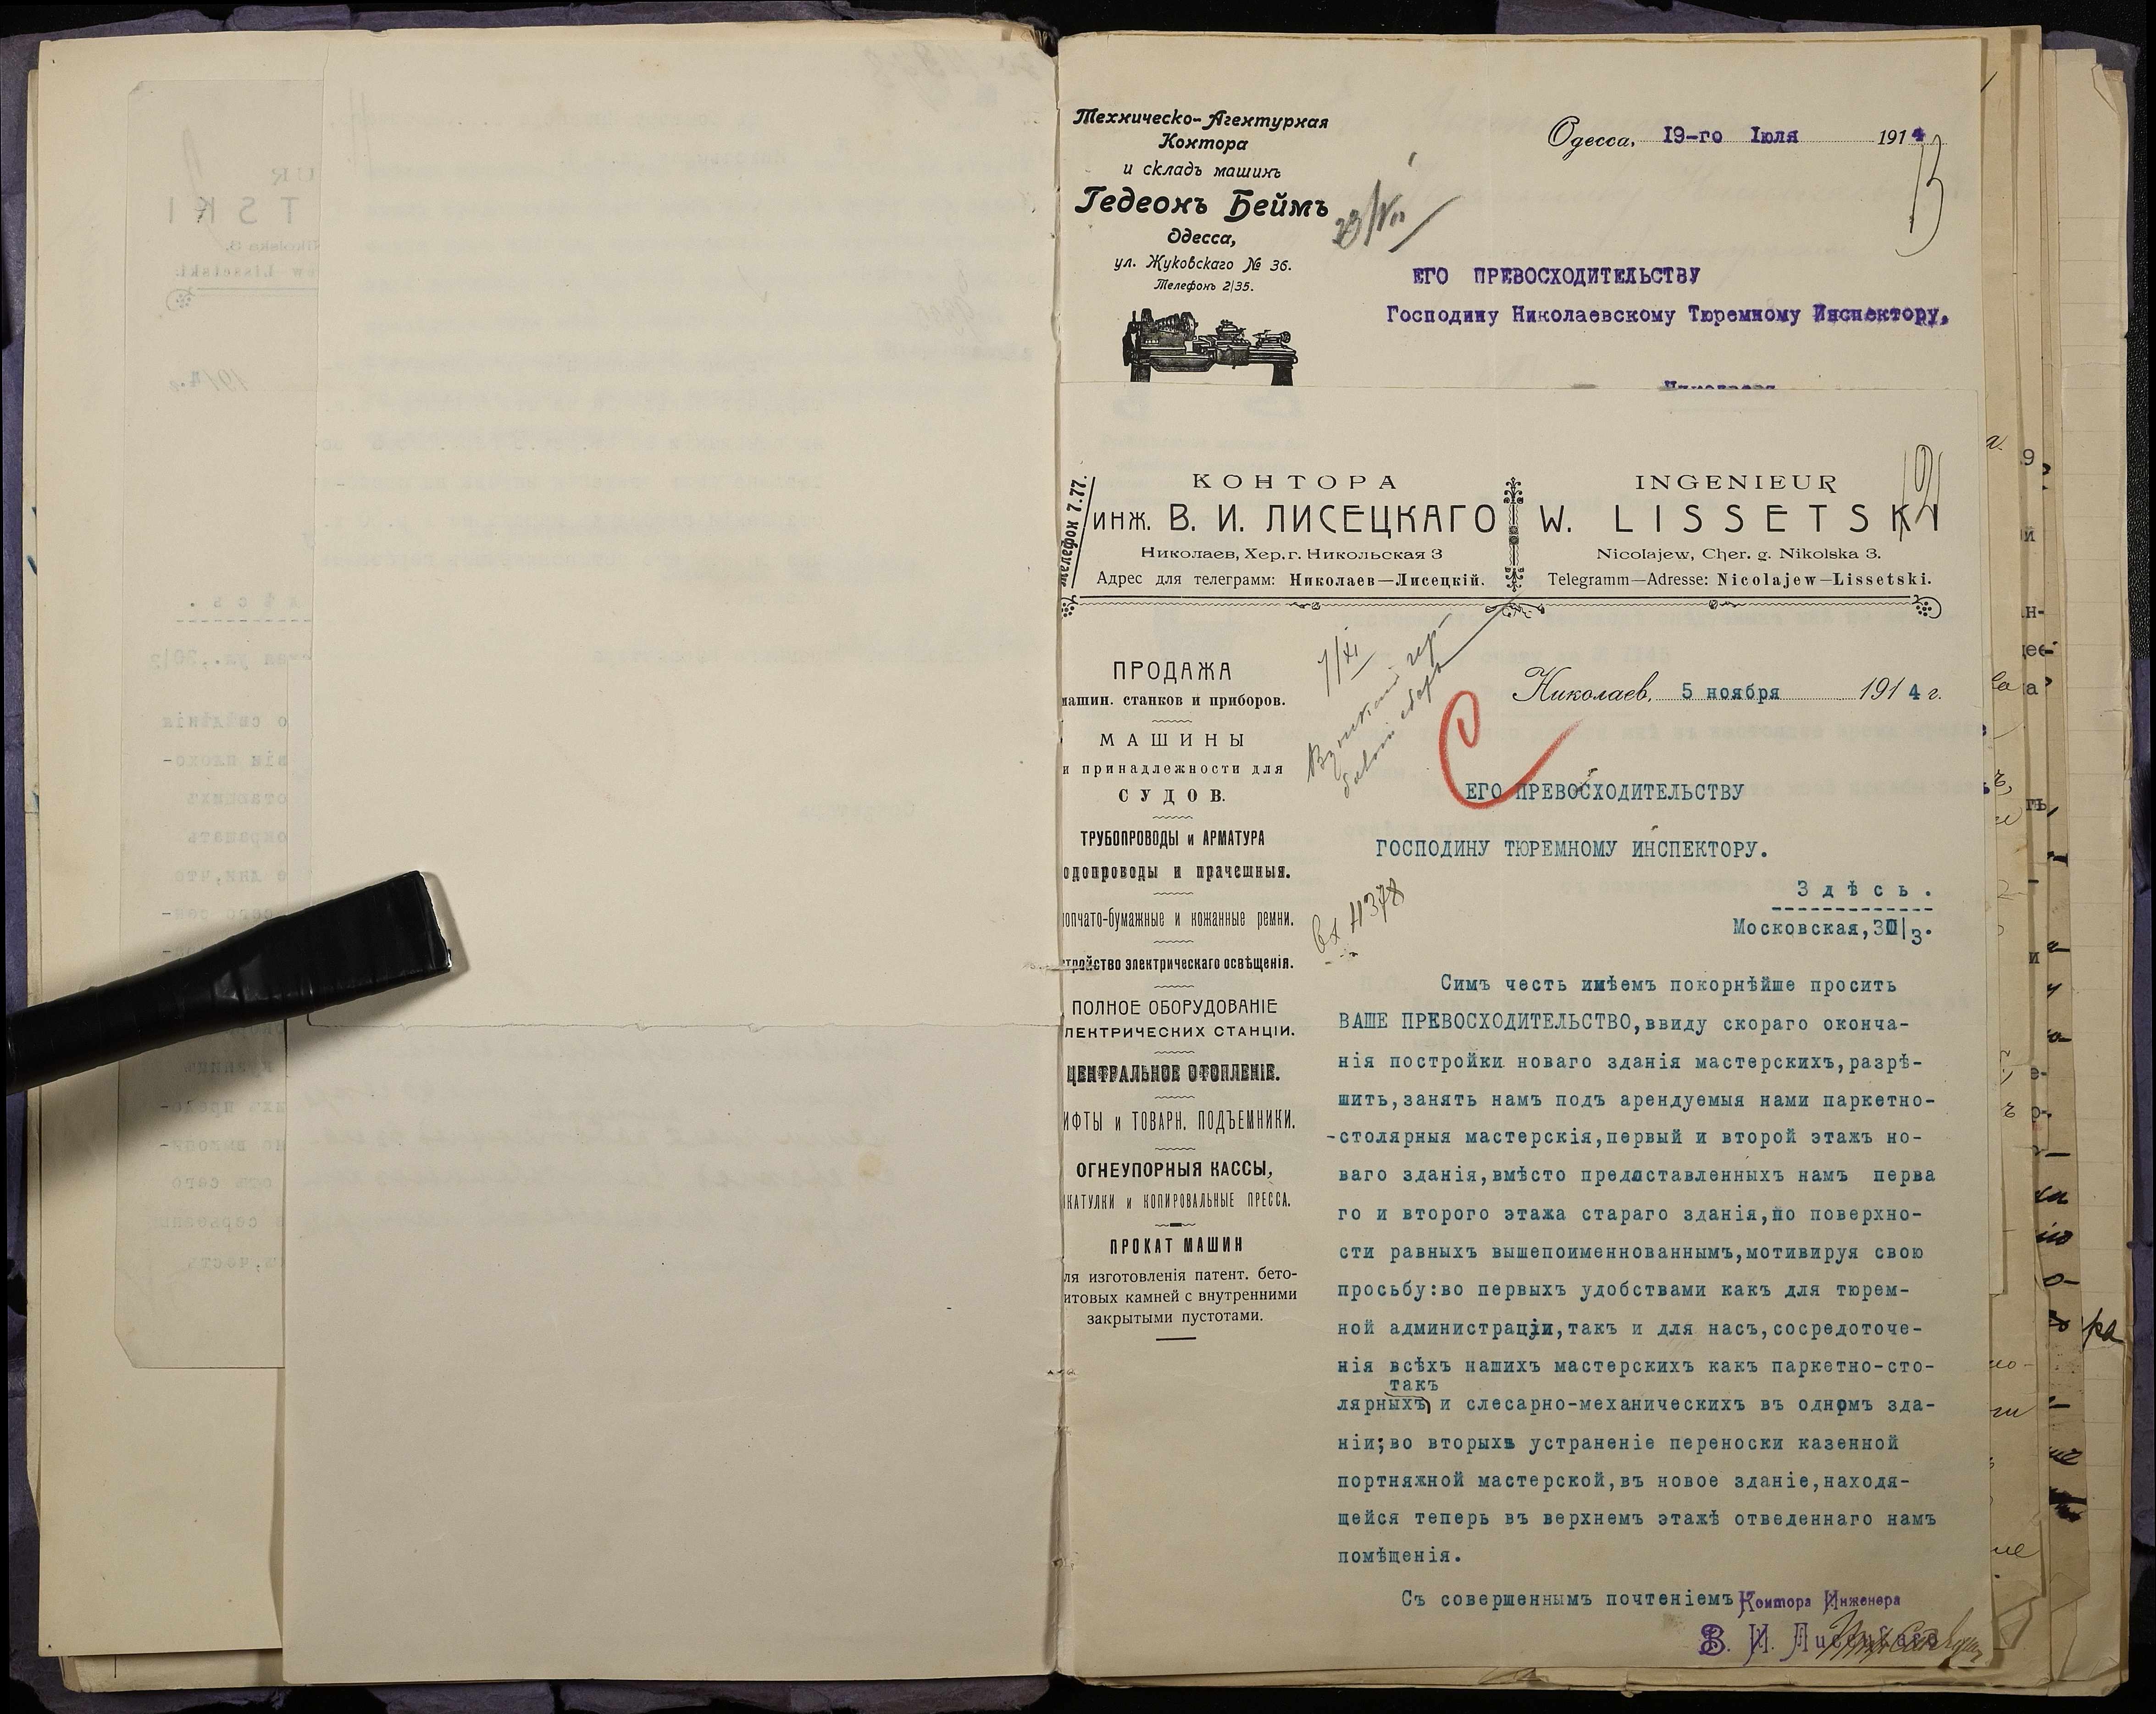 Техническо-Агентурная
Контора
и складъ машинъ
Гедеонъ Беймъ
Одесса,
ул. Жуковскаго № 36.
Телефонъ 2|35.
Одесса, 19-го Іюля 1914
13
23/VII
ЕГО ПРЕВОСХОДИТЕЛЬСТВУ
Господину Николаевскому Тюремному Инспектору,
Телефон 7.77.
КОНТОРА
ИНЖ. В. И. ЛИСЕЦКАГО
Николаев, Хер. г. Никольская 3
Адрес для телеграмм: Николаев—Лисецкій.
INGENIEUR
W. LISSETSKI
Nicolajew, Cher. g. Nikolska 3.
Telegramm—Adresse: Nicolajew—Lissetski.
ПРОДАЖА
машин. станков и приборов.
МАШИНЫ
и принадлежности для
СУДОВ.
ТРУБОПРОВОДЫ и АРМАТУРА
одопроводы и прачешныя.
опчато-бумажные и кожанные ремни.
тройство электрическаго освѣщенія.
ПОЛНОЕ ОБОРУДОВАНІЕ
ЛЕКТРИЧЕСКИХ СТАНЦІИ.
ЦЕНТРАЛЬНОЕ ОТОПЛЕНІЕ.
ИФТЫ и ТОВАРН. ПОДЪЕМНИКИ.
ОГНЕУПОРНЫЯ КАССЫ,
КАТУЛКИ и КОПИРОВАЛЬНЫЕ ПРЕССА.
ПРОКАТ МАШИН
ля изготовленія патент. бето-
итовых камней с внутренними
закрытыми пустотами.
7/XI
Николаев, 5 ноября 1914 г.
ЕГО ПРЕВОСХОДИТЕЛЬСТВУ
ГОСПОДИНУ ТЮРЕМНОМУ ИНСПЕКТОРУ.
Здѣсь.
Московская,30|3.
вх 11378
Симъ честь имѣемъ покорнѣйше просить
ВАШЕ ПРЕВОСХОДИТЕЛЬСТВО,ввиду скораго оконча-
нія постройки новаго зданія мастерскихъ,разрѣ-
шить,занять намъ подъ арендуемыя нами паркетно-
-столярныя мастерскія,первый и второй этажъ но-
ваго зданія,вмѣсто предоставленныхъ намъ перва
го и второго этажа стараго зданія,по поверхно-
сти равныхъ вышепоименнованнымъ,мотивируя свою
просьбу:во первыхъ удобствами какъ для тюрем-
ной администраціи,такъ и для насъ,сосредоточе-
нія всѣхъ нашихъ мастерскихъ какъ паркетно-сто-
такъ
лярныхъ и слесарно-механическихъ въ одномъ зда-
ніи;во вторыхъ устраненіе переноски казенной
портняжной мастерской,въ новое зданіе,находя-
щейся теперь въ верхнемъ этажѣ отведеннаго намъ
помѣщенія.
Съ совершеннымъ почтеніемъ
Контора Инженера
В. И. Лисецкаго